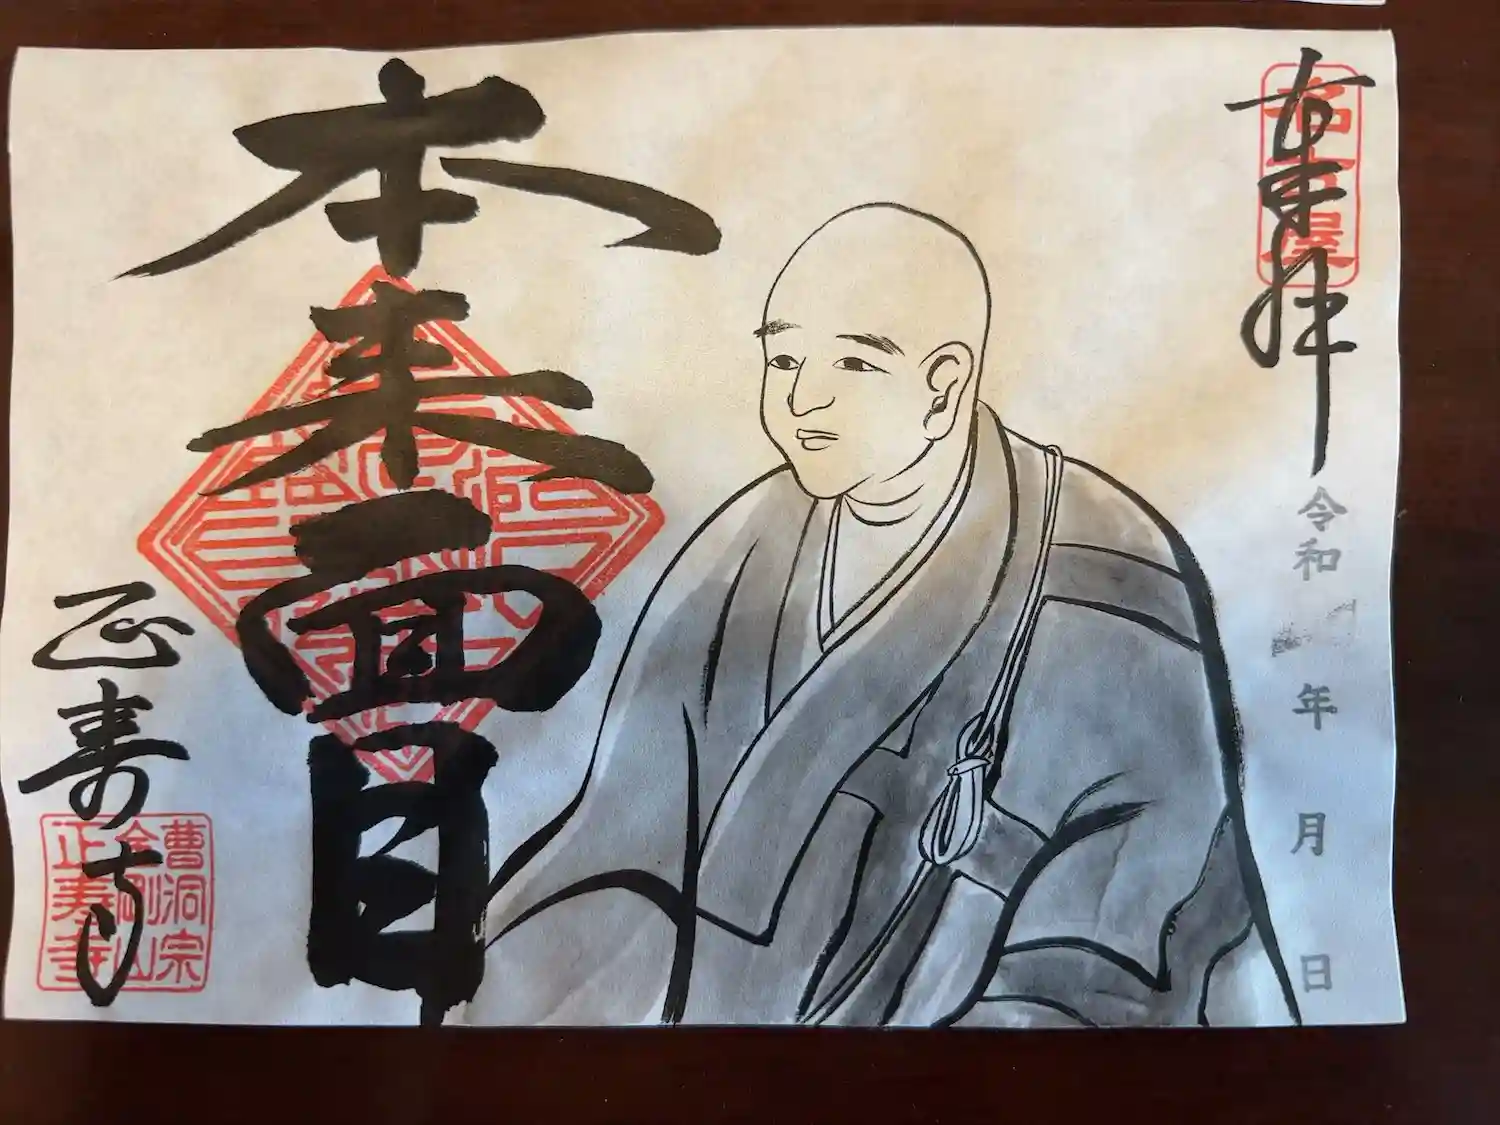 奉拝
名古屋
令和 年 月 日
本来面目
正寿寺
曹洞宗
金剛山
正寿寺